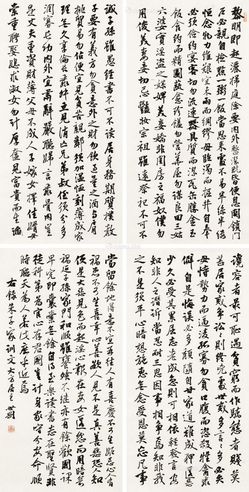 黎明即起灑掃庭除要內外整潔既昏便息關鎖門
戶必親自檢點一粥一飯當思來處不易半絲半縷
恆念物力維艱宜未雨而綢繆毋臨渴而掘井自奉
必須儉約宴客切勿流連器具質而潔瓦缶勝金玉
飲食約而精園蔬愈珍饈勿營華屋勿謀良田三姑
六婆實淫盜之媒婢美妾嬌非閨房之福奴僕勿
用俊美妻妾切忌豔妝祖宗雖遠祭祀不可不
誠子孫雖愚經書不可不讀居身務期質樸教
子要有義方勿貪意外之財勿飲過量之酒與肩
挑貿易勿佔便宜見窮苦親鄰須加溫恤刻薄成家
理無久享倫常乖舛立見消亡兄弟叔侄須分多
潤寡長幼內外宜法肅辭嚴聽婦言乖骨肉豈
是丈夫重資財薄父母不成人子嫁女擇佳婿毋
索重聘娶媳求淑女勿計厚奩見富貴而生諂
容者最可恥遇貧窮而作驕態者賤
莫甚居家戒爭訟訟則終凶處世戒多言言多必失
毋恃勢力而凌逼孤寡毋貪口腹而恣殺生禽乖
僻自是悔誤必多頹惰自甘家道難成狎暱惡
少久必受其累屈志老成急則可相依輕發言安
知非人之譖訴當忍耐三思因事相爭焉知非我
之不是須平心暗想施惠無念受恩莫忘凡事
當留餘地得意不宜再往人有喜慶不可生妒忌心人有
禍患不可生喜幸心善欲人見不是真善惡恐人知
便是大惡見色而起淫心報在妻女匿怨而用暗箭
禍延子孫家門和順雖饔飧不繼亦有餘歡國課
早完即囊橐無餘自得至樂讀書志在聖賢非
徒科第為官心存君國豈計身家守分安命順
時聽天為人若此庶乎近焉
右錄朱子家訓